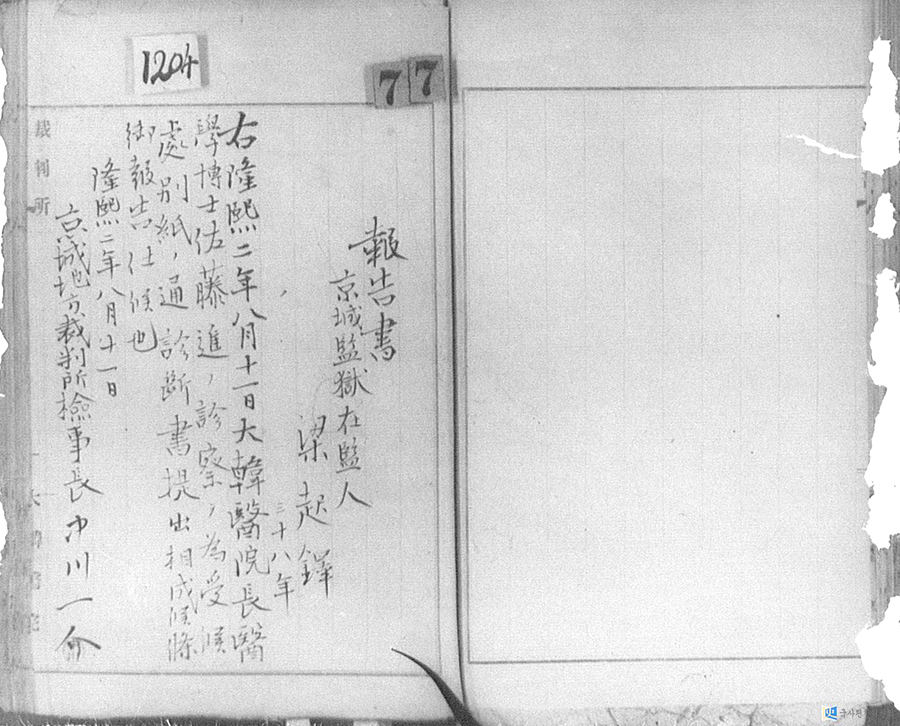 1204
7 7
報告書
京城監獄在監人
梁起鐸
三十八年
右隆熙二年八月十一日大韓醫院長醫
學博士佐藤進ノ診察ヲ為受候
處別紙ノ通診断書提出相成候條
御報告仕候也
隆熙二年八月十一日
京城地方裁判所檢事長中川一介
裁判所